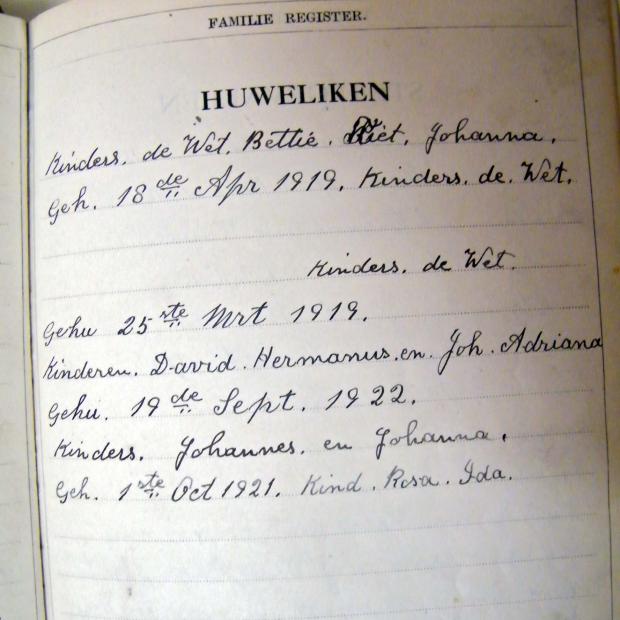 FAMILIE REGISTER.
HUWELIKEN
Kinders. de Wet. Bettie. Piet, Johanna.
Geh. 18de Apr 1919. Kinders. de. Wet.
Kinders. de Wet.
Gehu 25ste Mrt 1919.
Kinderen. David. Hermanus. en. Joh. Adriana
Gehu. 19de Sept. 1922.
Kinders. Johannes. en Johanna.
Geh. 1ste Oct 1921. Kind. Rosa. Ida.